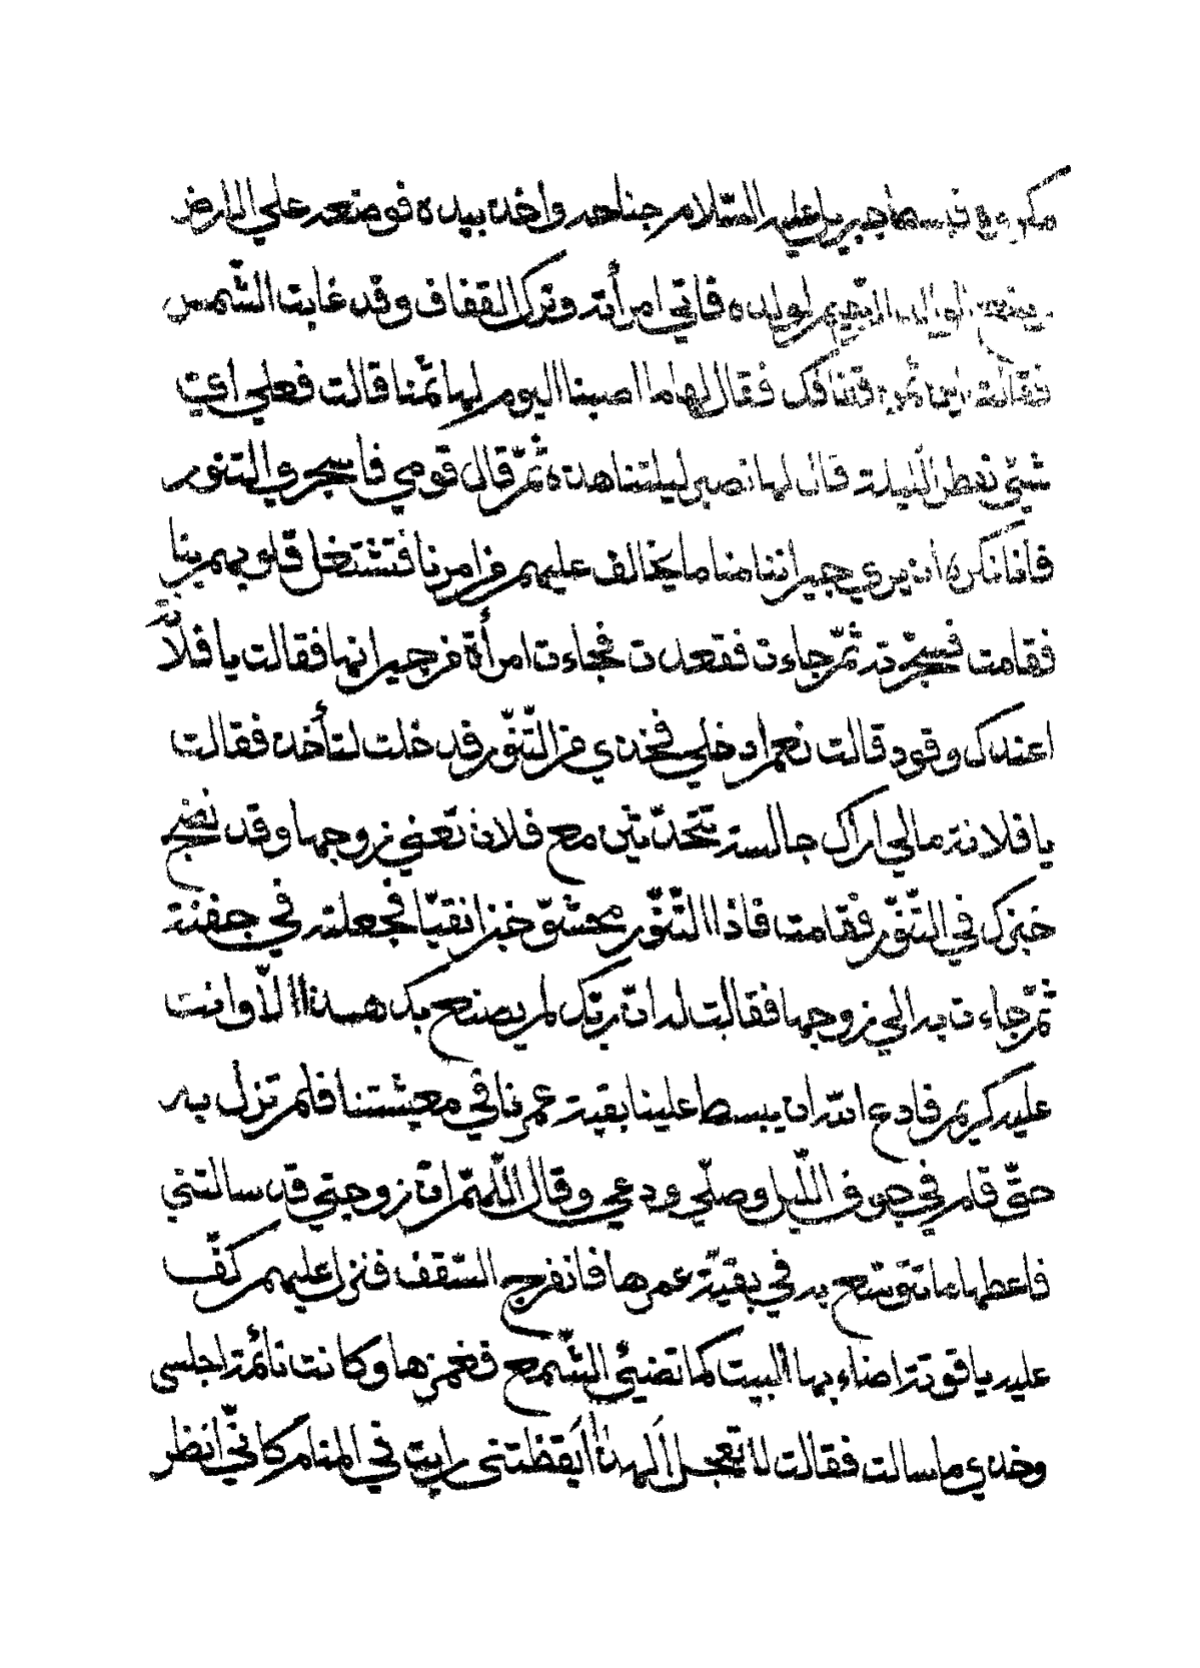 مكروه فبسط جبريل عليه السّلام جناحه واخذه بيده فوضعه علي الارض
الوالد الرّحيم لولده فاتي امرأته وترك القفاف وقد غابت الشّمس
فقالت اين ثمن قفافك فقال لها ما اصبنا اليوم لها ثمنا قالت فعلي اي
شيئ نفطر اللّيلة قال لها نصبر ليلتنا هذه ثمّ قال قومي فاسجري التنور
فانا نكره ان يري جيراننا منا ما يخالف عليهم من امرنا فتشتغل قلوبهم بنا
فقامت فسجّرته ثمّ جاءت فقعدت فجاءت امرأة من جيرانها فقالت يا فلانة
اعندك وقود قالت نعم ادخلي فخذي من التّنّور قد خلت لتأخذ فقالت
يا فلانة مالي اراك جالسة تتحدّثين مع فلان تعني زوجها وقد نضج
خبزك في التّنّور فقامت فاذا التّنّور محشوّ خبزا نقيّا فجعلته في جفنة
ثمّ جاءت به الي زوجها فقالت له انّ ربّك لم يصنع بك هذا الّا وانت
عليه كريم فادع الله ان يبسط علينا بقية عمرنا في معيشتنا فلم تزل به
حتّي قام في جوف اللّيل وصلّي ودعي وقال اللّهمّ انّ زوجتي قد سالتني
فاعطها ما تتوسّع به في بقيّة عمرها فانفرج السّقف فنزل عليهم كفّ
عليه ياقوتة اضاء بها البيت كما تضيئ الشّمع فغمزها وكانت نائمة اجلسي
وخذي ما سالت فقالت لا تعجل ألهذا أيقظتني رايت في المنام كانّي انظر